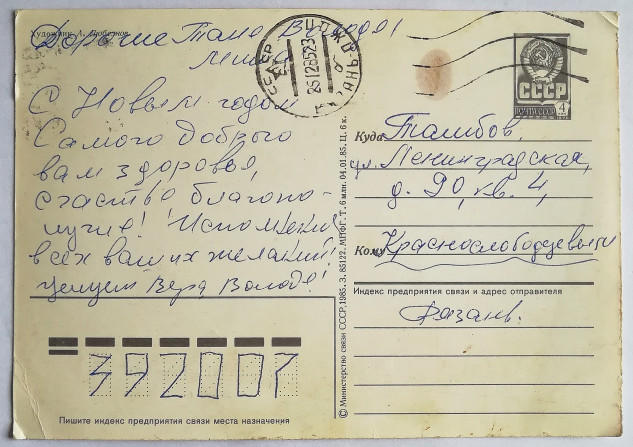 Художник А. Любезнов
Дорогие Таня, Володя!
С Новым годом
Самого доброго
вам здоровья,
счастья благопо-
лучия! Исполнения
всех ваших желаний!
Целуем Вера Володя!
СССР
26128523
СССР
ПОЧТА СССР
4
Куда Тамбов.
ул. Ленинградская,
д. 90, кв. 4,
Кому Краснослободцевым
Индекс предприятия связи и адрес отправителя
Рязань.
392007
Пишите индекс предприятия связи места назначения
© Министерство связи СССР, 1985. З. 85122. МПФГ. Т. 6 млн. 04.01.85. Ц. 6 к.